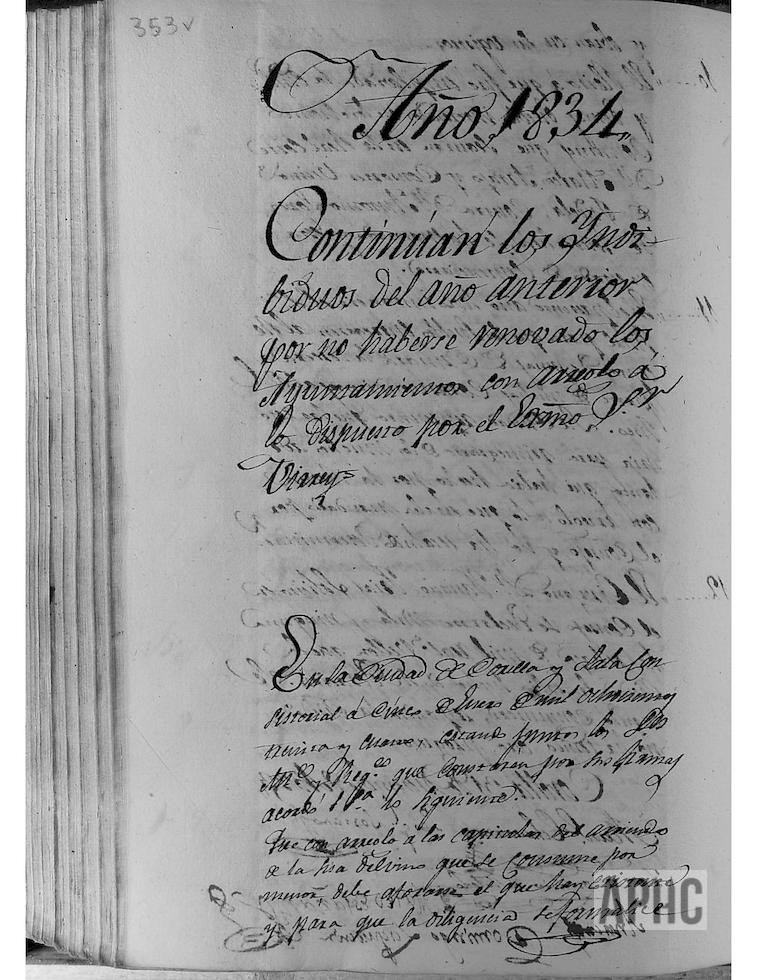 353v
Año, 1834,,
Continúan los Yndi-
biduos del año anterior
por no haberse renovado los
Ayuntamientos con arreglo á
lo dispuesto por el Exmõ Sr.
Virrey=
En la Ciudad de Corella y Sala Con
sistorial á Cinco de Enero de mil Ochocientos
treinta y cuatro, estando juntos los Srs
y Reg.es que constarán por sus firmas
acordó lo siguiente.
Que con arreglo á las capitulas del arriendo
de la sisa del vino que se Consume por
menor, debe aforarse el que han
y para que la diligencia se formalice
APHC